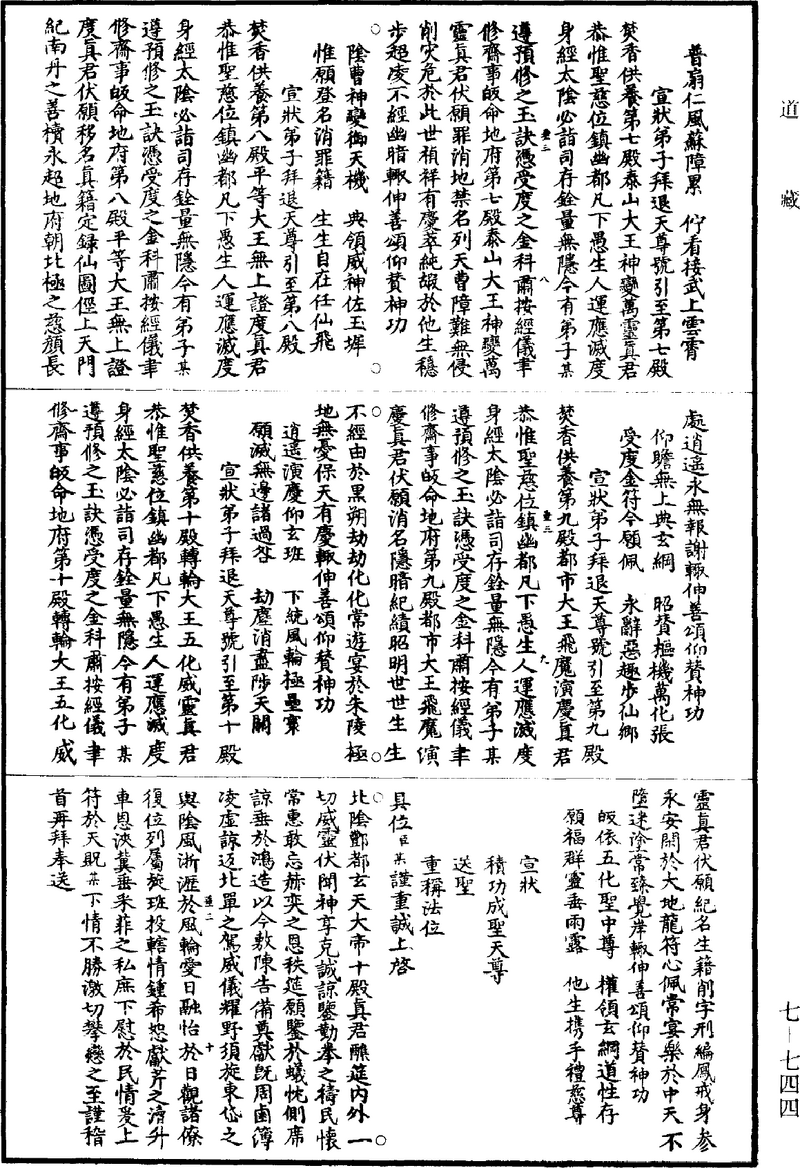 道藏
普扇仁風蘇障累　佇看接武上雲霄
宣狀弟子拜退天尊號引至第七殿
焚香供養第七殿泰山大王神變萬靈真君
恭惟聖慈位鎮幽都凡下愚生人運應滅度
身經太陰必詣司存銓量無隱今有弟子某
遵預修之玉訣憑受度之金科肅按經儀聿
修齋事皈命地府第七殿泰山大王神變萬
靈真君伏願罪消地禁名列天曹障難無侵
削災危於此世禎祥有慶萃純嘏於他生穩
步超凌不經幽暗輙伸善頌仰賛神功
陰曹神變御天機　典領威神佐玉墀
惟願登名消罪籍　生生自在任仙飛
宣狀弟子拜退天尊引至第八殿
焚香供養第八殿平等大王無上證度真君
恭惟聖慈位鎮幽都凡下愚生人運應滅度
身經太陰必詣司存銓量無隱今有弟子某
遵預修之玉訣憑受度之金科肅按經儀聿
修齋事皈命地府第八殿平等大王無上證
度真君伏願移名真籍定録仙圖徑上天門
紀南丹之善櫝永超地府朝北極之慈顏長
處逍遥永無報謝輙伸善頌仰賛神功
仰瞻無上典玄綱　昭賛樞機萬化張
受度金符今願佩　永辭惡趣步仙鄉
宣狀弟子拜退天尊號引至第九殿
焚香供養第九殿都市大王飛魔演慶真君
恭惟聖慈位鎮幽都凡下愚生人運應滅度
身經太陰必詣司存銓量無隱今有弟子某
遵預修之玉訣憑受度之金科肅按經儀聿
修齋事皈命地府第九殿都市大王飛魔演
慶真君伏願消名隱暗紀績昭明世世生生
不經由於黑朔劫劫化化常遊宴於朱陵極
地無憂保天有慶輙伸善頌仰賛神功
逍遥演慶仰玄班　下統風輪極壘寨
願滅無邊諸過咎　劫塵消盡陟天關
宣狀弟子拜退天尊號引至第十殿
焚香供養第十殿轉輪大王五化威靈真君
恭惟聖慈位鎮幽都凡下愚生人運應滅度
身經太陰必詣司存銓量無隱今有弟子某
遵預修之玉訣憑受度之金科肅按經儀聿
修齋事皈命地府第十殿轉輪大王五化威
靈真君伏願紀名生籍削字刑編鳳戒身參
永安閑於大地龍符心佩常宴樂於中天不
墮迷塗常臻覺岸輙伸善頌仰賛神功
皈依五化聖中尊　權領玄綱道性存
願福群靈垂雨露　他生携手禮慈尊
宣狀
積功成聖天尊
送聖
重稱法位
具位臣某謹重誠上啓
北陰酆都玄天大帝十殿真君醮筵内外一
切威靈伏聞神享克誠諒鑒勤拳之禱民懷
常惠敢忘赫奕之恩秩筵願鑒於蟻忱側席
諒垂於鴻造以今敷陳告備奠獻既周鹵簿
凌虚諒迈北單之駕威儀耀野須旋東岱之
輿陰風淅瀝於風輪愛日融怡於日觀諸僚
復位列屬旋班投轄情鍾希恕獻芹之瀆升
車恩浹冀垂采菲之私庶下慰於民情爰上
符於天貺某下情不勝激切攀戀之至謹稽
首再拜奉送
七-七四四